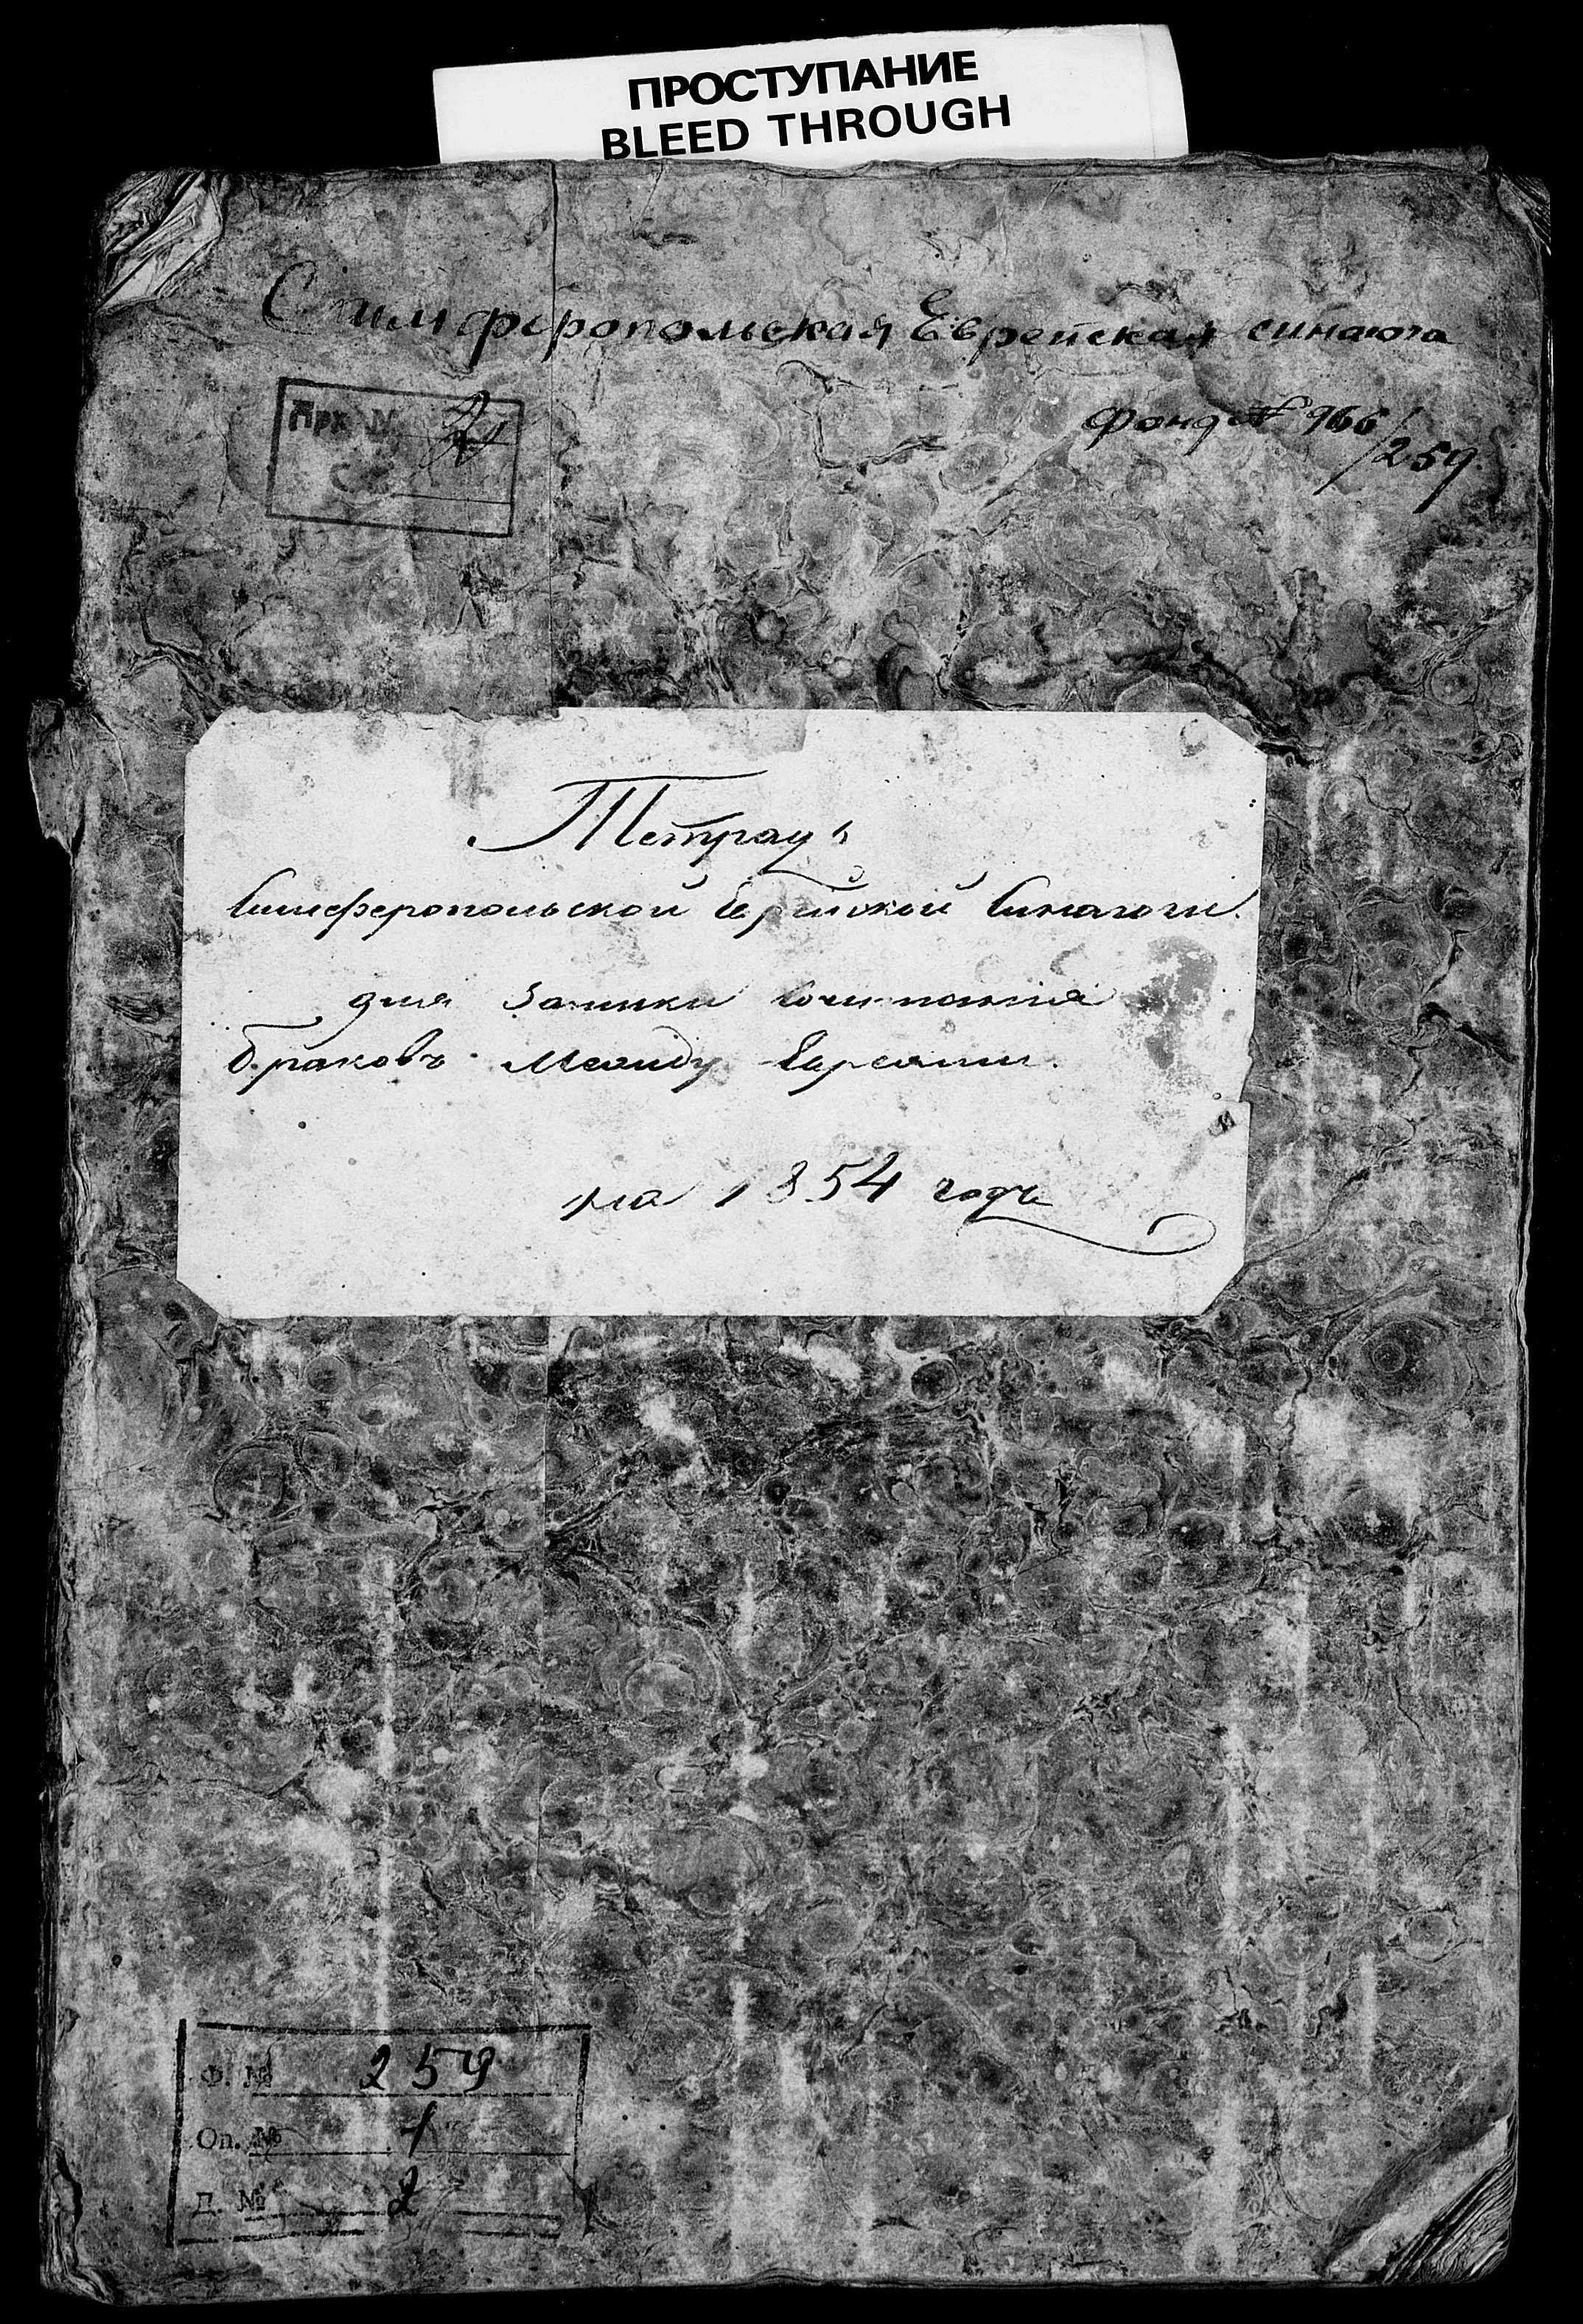 ПРОСТУПАНИЕ
BLEED THROUGH
Симферопольская Еврейская синагога
Фонд № 966/259.
Прх. №
Тетрадь
Симферопольской Еврейской Синагоги.
для Записки Сочитания
браковъ Между Евреями.
на 1854 годъ
Ф. № 259
Оп. № 1
Д. № 2